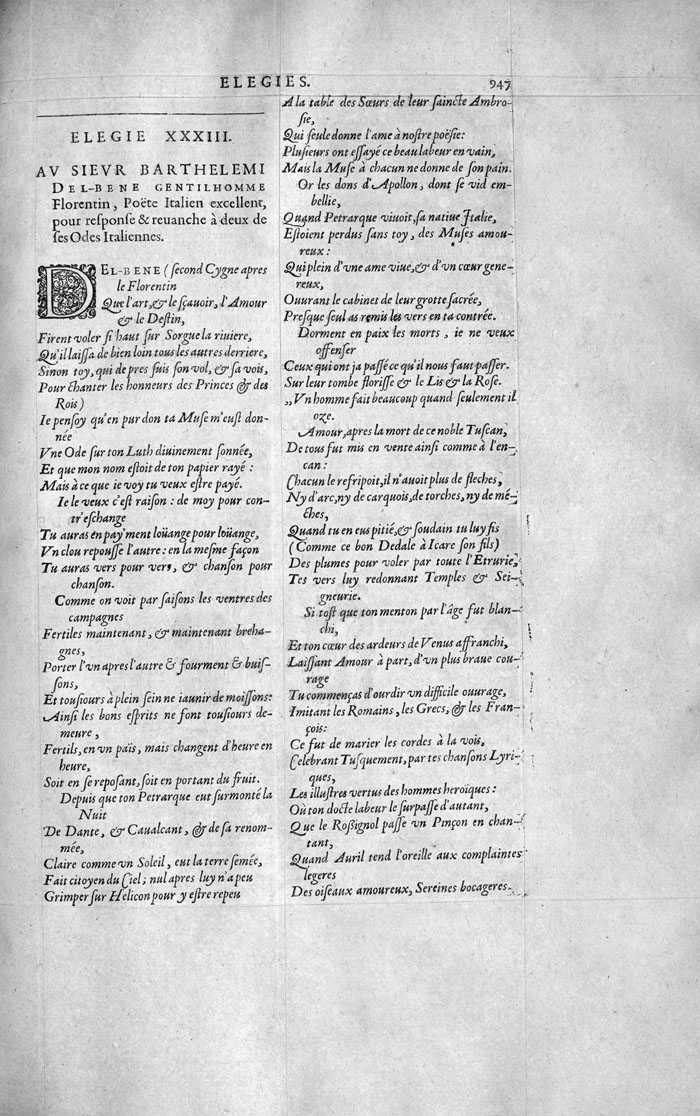 ELEGIES.
947
ELEGIE XXXIII.
AV SIEVR BARTHELEMI
DEL-BENE GENTILHOMME
Florentin, Poëte Italien excellent,
pour response & reuanche à deux de
ses Odes Italiennes.
DEL-BENE (second Cygne apres
le Florentin
Que l'art, & le sçauoir, l'Amour
& le Destin,
Firent voler si haut sur Sorgue la riuiere,
Qu'il laissa de bien loin tous les autres derriere,
Sinon toy, qui de pres suis son vol, & sa vois,
Pour chanter les honneurs des Princes & des
Rois)
Ie pensoy qu'en pur don ta Muse m'eust don-
née
Vne Ode sur ton Luth diuinement sonnée,
Et que mon nom estoit de ton papier rayé:
Mais à ce que ie voy tu veux estre payé.
Ie le veux c'est raison: de moy pour con-
tr'eschange
Tu auras en pay'ment loüange pour loüange,
Vn clou repousse l'autre: en la mesme façon
Tu auras vers pour vers, & chanson pour
chanson.
Comme on voit par saisons les ventres des
campagnes
Fertiles maintenant, & maintenant breha-
gnes,
Porter l'vn apres l'autre & fourment & buis-
sons,
Et tousiours à plein sein ne iaunir de moissons:
Ainsi les bons esprits ne font tousiours de-
meure,
Fertils, en vn païs, mais changent d'heure en
heure,
Soit en se reposant, soit en portant du fruit.
Depuis que ton Petrarque eut surmonté la
Nuit
De Dante, & Caualcant, & de sa renom-
mée,
Claire comme vn Soleil, eut la terre semée,
Fait citoyen du Ciel; nul apres luy n'a peu
Grimper sur Helicon pour y estre repeu
A la table des Sœurs de leur saincte Ambro-
sie,
Qui seule donne l'ame à nostre poësie:
Plusieurs ont essayé ce beau labeur en vain,
Mais la Muse à chacun ne donne de son pain.
Or les dons d'Apollon, dont se vid em-
bellie,
Quand Petrarque viuoit, sa natiue Italie,
Estoient perdus sans toy, des Muses amou-
reux:
Qui plein d'vne ame viue, & d'vn cœur gene-
reux,
Ouurant le cabinet de leur grotte sacrée,
Presque seul as remis les vers en ta contrée.
Dorment en paix les morts, ie ne veux
offenser
Ceux qui ont ja passé ce qu'il nous faut passer.
Sur leur tombe florisse & le Lis & la Rose.
„Vn homme fait beaucoup quand seulement il
oze.
Amour, apres la mort de ce noble Tuscan,
De tous fut mis en vente ainsi comme à l'en-
can:
Chacun le refripoit, il n'auoit plus de fleches,
Ny d'arc, ny de carquois, de torches, ny de mé-
ches,
Quand tu en eus pitié, & soudain tu luy fis
(Comme ce bon Dedale à Icare son fils)
Des plumes pour voler par toute l'Etrurie,
Tes vers luy redonnant Temples & Sei-
gneurie.
Si tost que ton menton par l'âge fut blan-
chi,
Et ton cœur des ardeurs de Venus affranchi,
Laissant Amour à part, d'vn plus braue cou-
rage
Tu commenças d'ourdir vn difficile ouurage,
Imitant les Romains, les Grecs, & les Fran-
çois:
Ce fut de marier les cordes à la vois,
Celebrant Tusquement, par tes chansons Lyri-
ques,
Les illustres vertus des hommes heroïques:
Où ton docte labeur le surpasse d'autant,
Que le Roßignol passe vn Pinçon en chan-
tant,
Quand Auril tend l'oreille aux complaintes
legeres
Des oiseaux amoureux, Sereines bocageres.